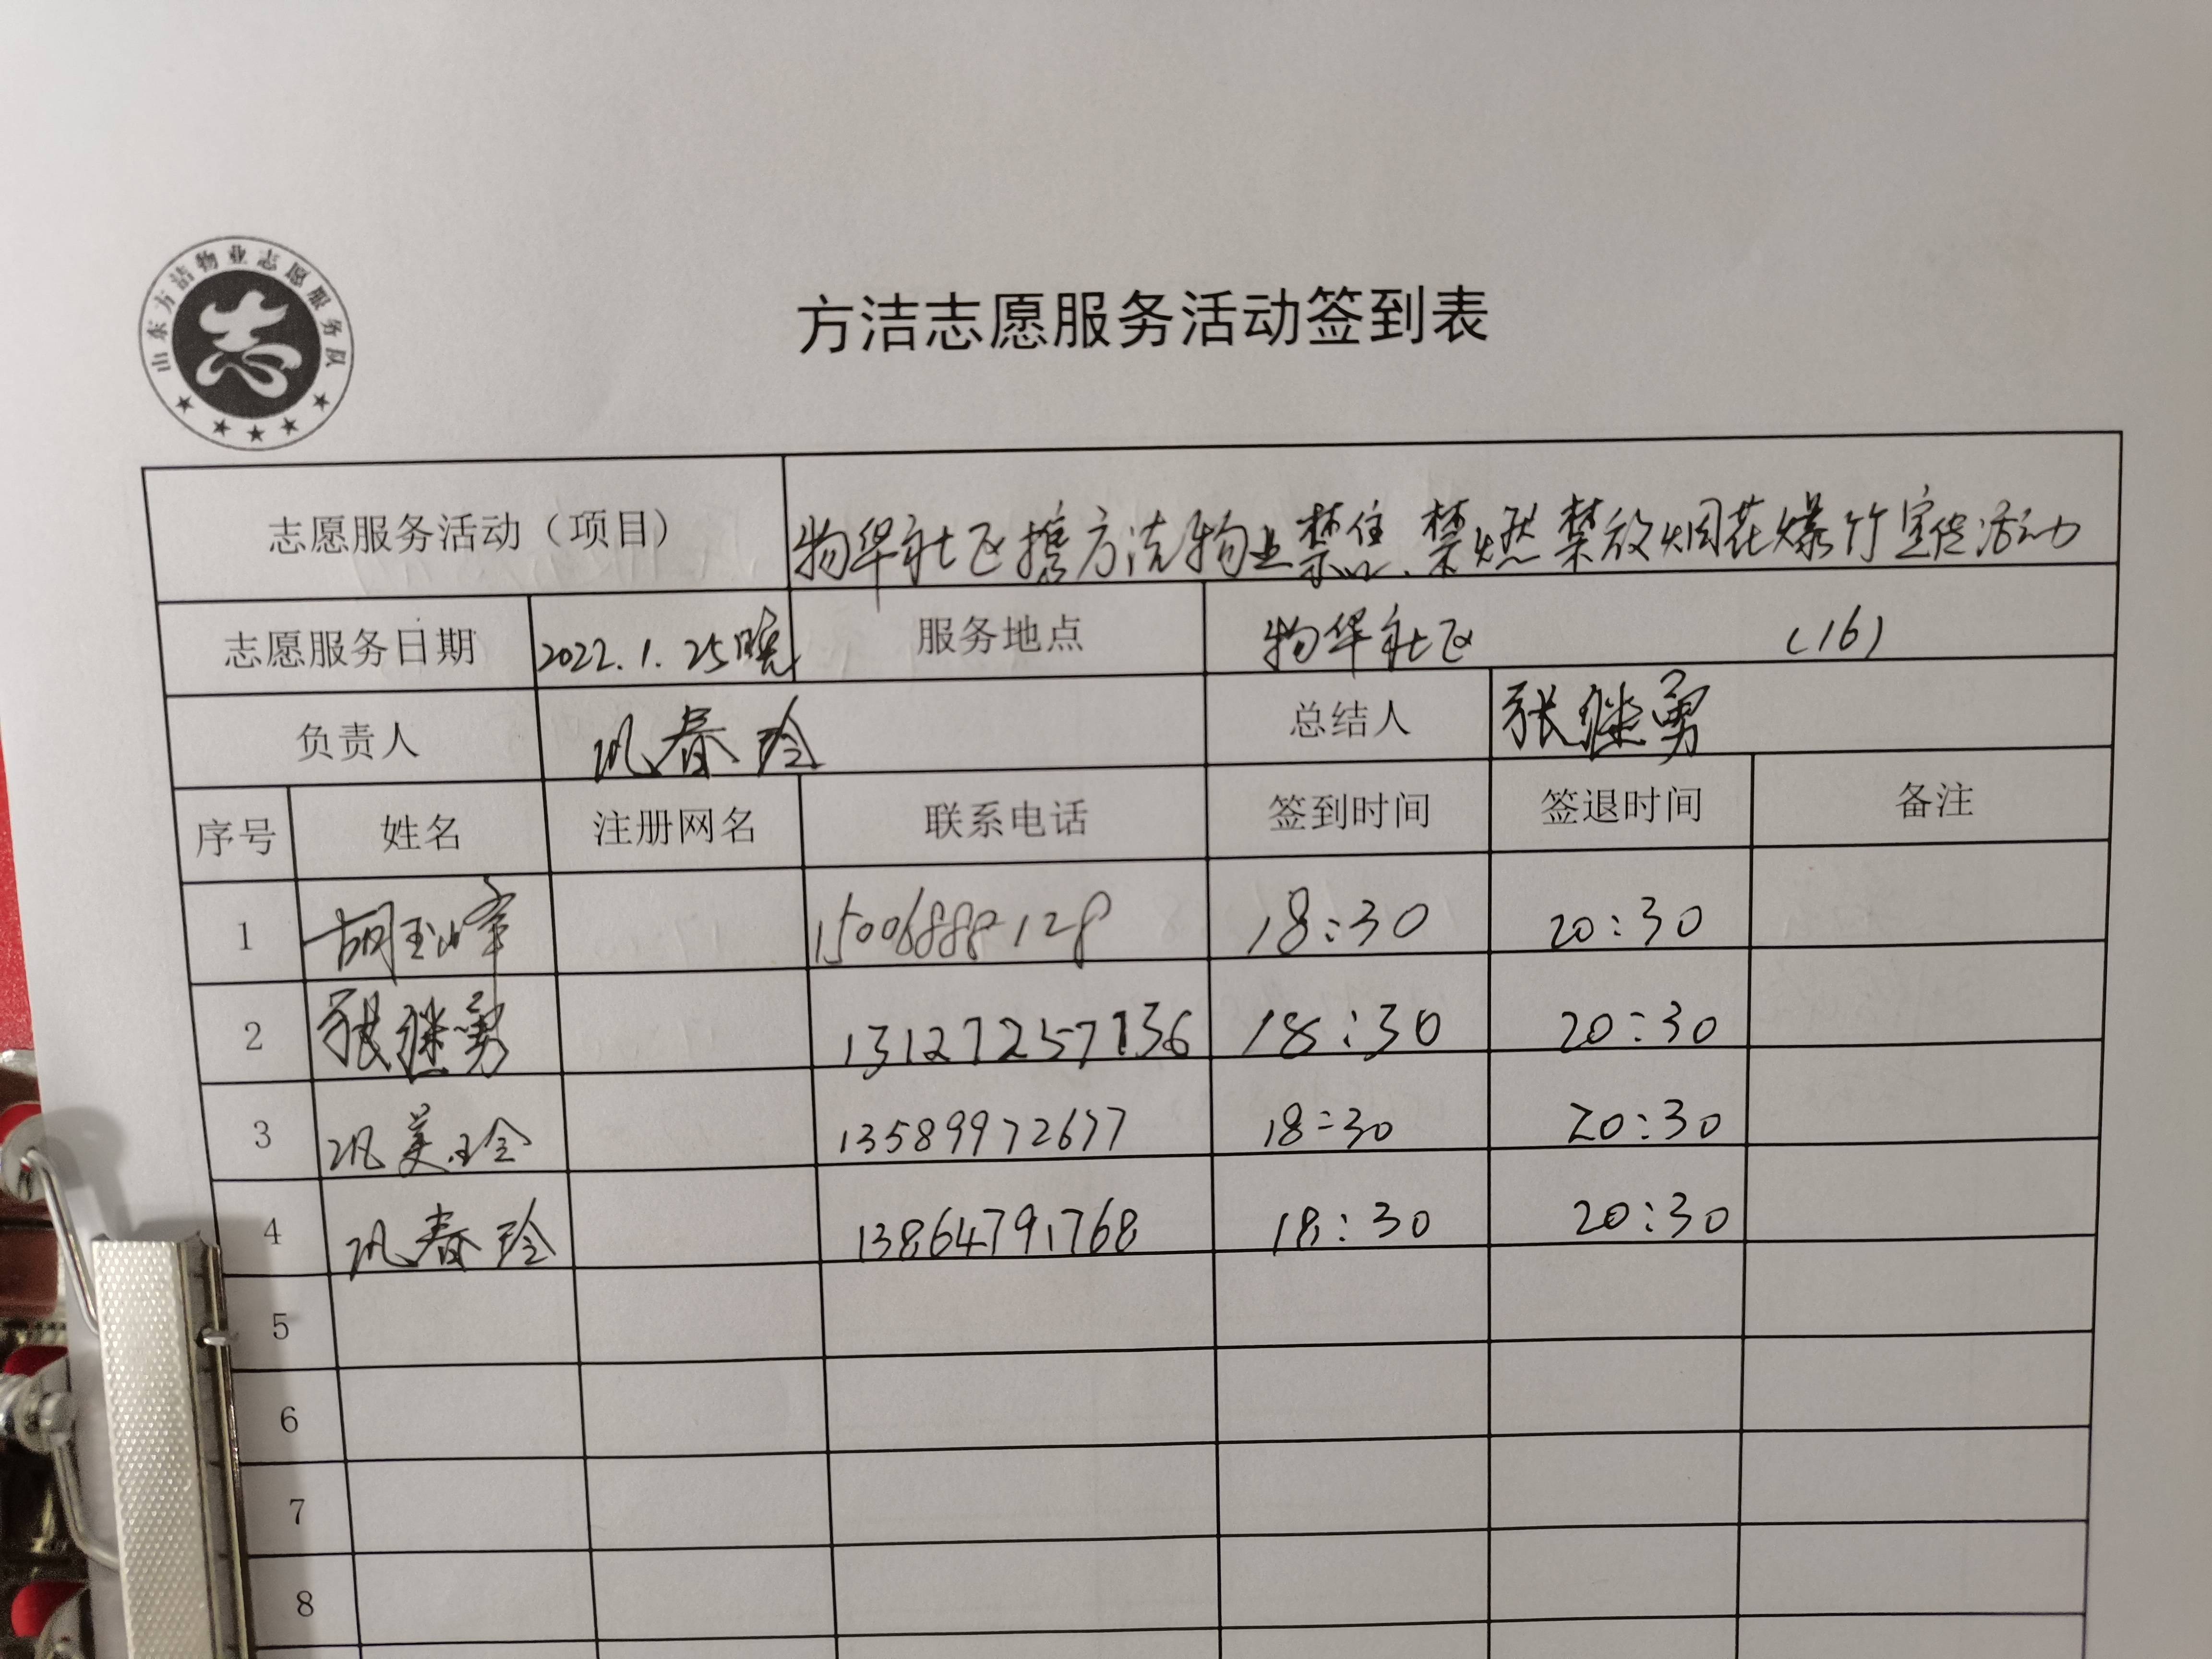 山东方洁物业志愿服务队
志
方洁志愿服务活动签到表
志愿服务活动（项目） 物华社区携方洁物业禁售、禁燃禁放烟花爆竹宣传活动
志愿服务日期 2022.1.25晚 服务地点 物华社区 （16）
负责人 巩春玲 总结人 张继勇
序号 姓名 注册网名 联系电话 签到时间 签退时间 备注
1 胡玉峰 15006888128 18:30 20:30
2 张继勇 13127257136 18:30 20:30
3 巩美玲 13589972677 18:30 20:30
4 巩春玲 13864791768 18:30 20:30
5
6
7
8